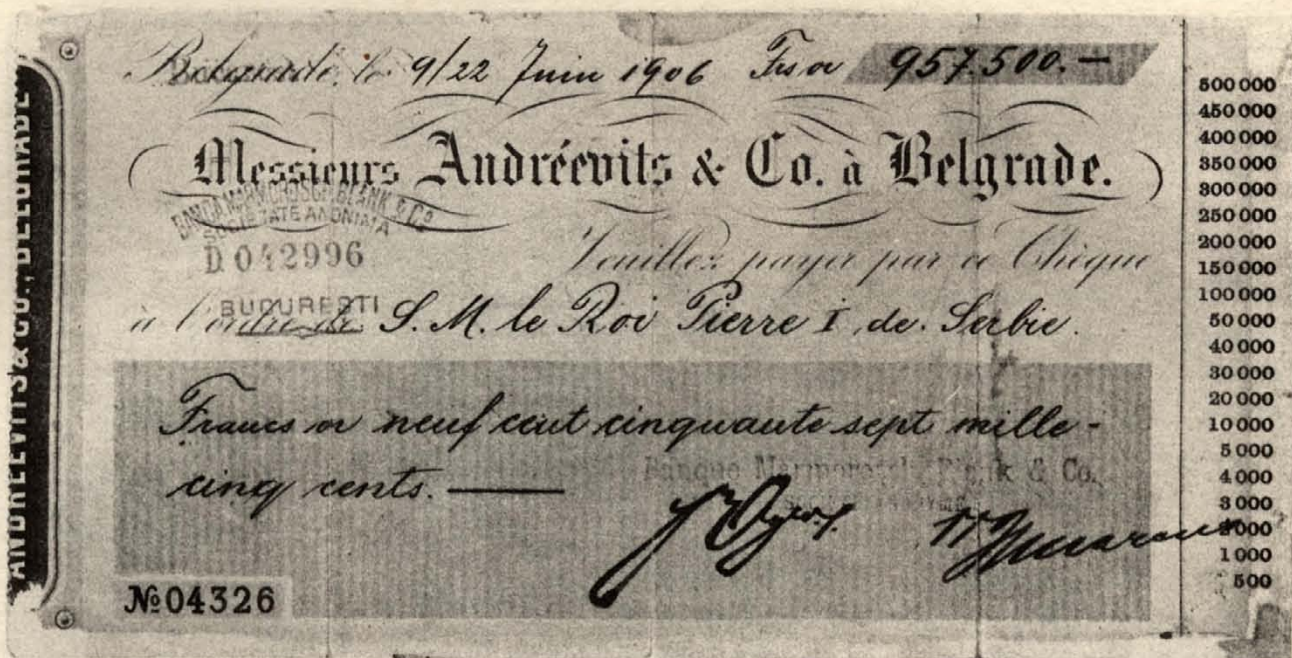 ANDRÉEVITS & CO., BELGRADE
Belgrade, le 9/22 Juin 1906 Frs or 957.500.—
Messieurs Andréevits & Co. à Belgrade.
BANCA MARMOROSCH, BLANK & Co
SOCIETATE ANONIMA
D 042996
BUCUREȘTI
Veuillez payer par ce Chèque
à l'ordre de S. M. le Roi Pierre I de Serbie.
Francs or neuf cent cinquante sept mille-
cinq cents.—
Banque Marmorosch, Blank & Co.
№04326
500 000
450 000
400 000
350 000
300 000
250 000
200 000
150 000
100 000
50 000
40 000
30 000
20 000
10 000
5 000
4 000
3 000
2000
1 000
500